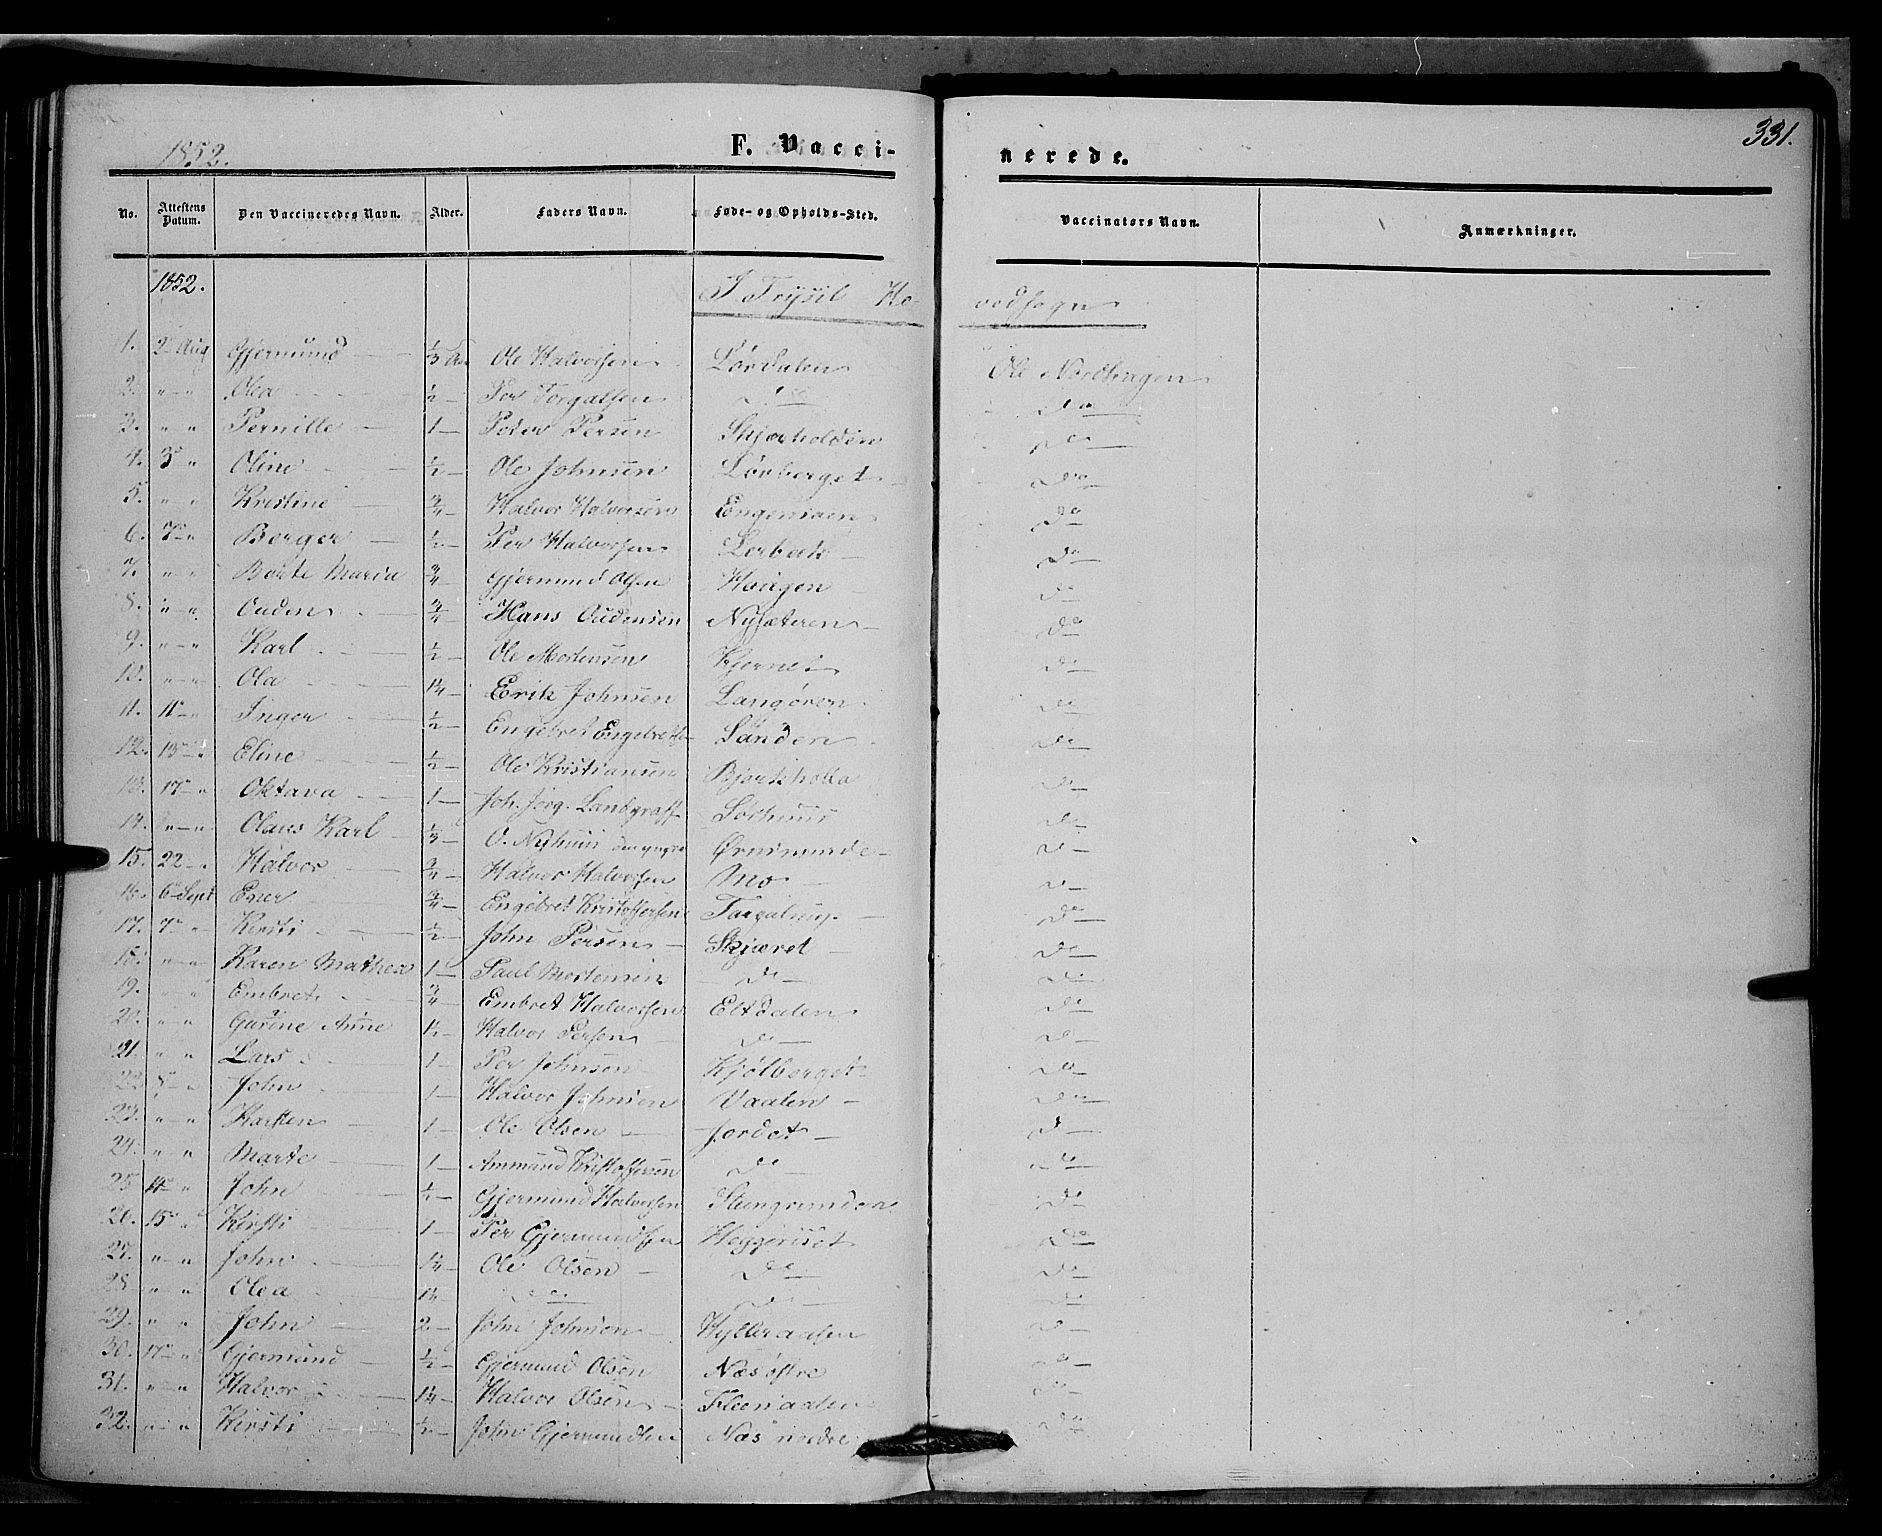 1852.
F. Vacci-
nerede.
331.
No. Attestens Datum. Den Vaccineredes Navn. Alder. Faders Navn. Føde- og Opholds-Sted. Vaccinators Navn. Anmærkninger.
1852. I Trysil Ho- vedsogn
1. 2 Aug Gjermund 1/3 Aar Ole Halvorsen Lørdalen Ole Nordhagen
2. " " Olea 1/2 Per Torgalsen do do
3. " " Pernille 1 Peder Persen Skjærholden do
4. 3 " Oline 1/2 Ole Johnsen Lørberget do
5. " " Kristine 3/4 Halvor Halvorsen Engemoen do
6. 7 " Berger 1/2 Per Halvorsen Lerbæk do
7. " " Berte Maria 3/4 Gjermund Olsen Hougen do
8. " " Ouden 3/4 Hans Oudensen Nysæteren do
9. " " Karl 1/2 Ole Mortensen Kjernet do
10. " " Ola 1 1/4 Erik Johnsen Langøren do
11. 11 " Inger 1/2 Engebret Engebretsen Sanden do
12. 13 " Eline 1/2 Ole Kristiansen do
13. 17 " Oktava 1 Joh. Jørg. Landgraff Sorhuus do
14. " " Olaus Karl 1/3 O. Nyhuus den yngre Ørnimunde do
15. 22 " Halvor 3/4 Halvor Halvorsen Mo do
16. 6 Sept Ener 3/4 Engebret Kristoffersen do
17. 7 " Kersti 1/2 John Persen Skjæret do
18. " " Karen Mathea 1 Paul Mortensen do do
19. " " Embret 3/4 Embret Halvorsen Eltdalen do
20. " " Gurine Anne 1 1/2 Halvor Persen do do
21. " " Lars 1 Per Johnsen Kjølberget do
22. 8 " John 1 Halvor Johnsen Vaalen do
23. " " Karsten 1 Ole Olsen Jordet do
24. " " Marte 1 Ammund Kristoffersen do do
25. 14 " John 1/2 Gjermund Halvorsen Stengrunden do
26. 15 " Kirsti 1 Per Gjermundsen Heggeriset do
27. " " John 1 1/4 Ole Olsen do do
28. " " Olea 1 1/4 do do do
29. " " John 2 John Johnsen Hylleraasen do
30. 17 " Gjermund 1/2 Gjermund Olsen Næs østre do
31. " " Halvor 1 1/4 Halvor Olsen do
32. " " Kirsti 1/2 John Gjermundsen Næs nordre do